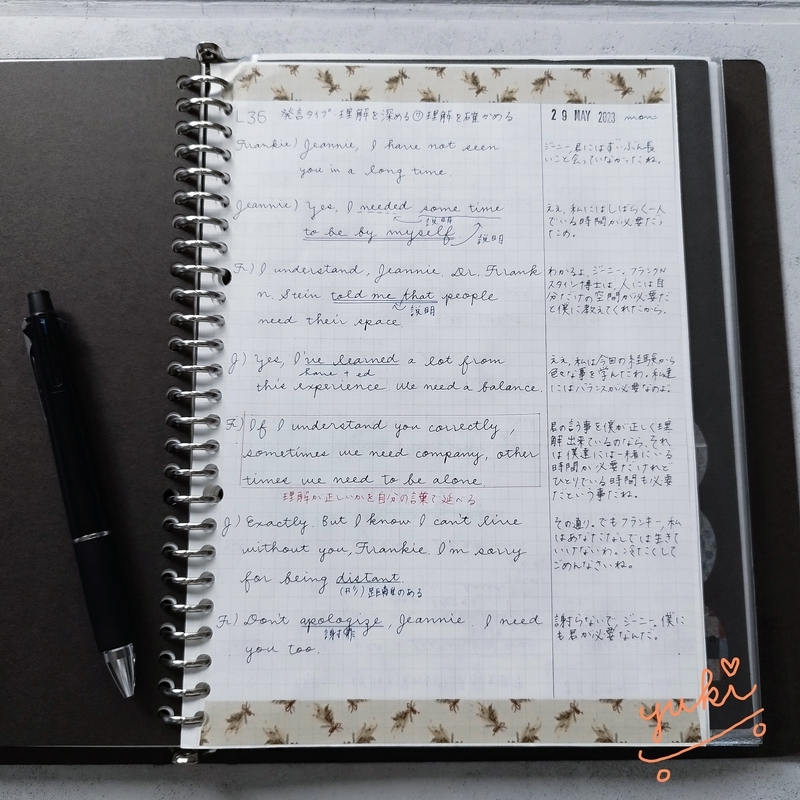 L36 発言タイプ 理解を深める⑦理解を確かめる
29 MAY 2023 mon
Frankie) Jeannie, I have not seen
you in a long time.
ジーニー、君にはずいぶん長
いこと会っていなかったね。
Jeannie) Yes, I needed some time
説明
to be by myself
説明
ええ、私にはしばらく一人
でいる時間が必要だっ
たの。
F.) I understand, Jeannie. Dr. Frank
n. Stein told me that people
説明
need their space
わかるよ、ジーニー。フランクン
スタイン博士は、人には自
分だけの空間が必要だ
と僕に教えてくれたから。
J) Yes, I've learned a lot from
have + ed
this experience We need a balance.
ええ、私は今回の経験から
色々な事を学んだわ。私達
にはバランスが必要なのよ。
F.) If I understand you correctly,
sometimes we need company, other
times we need to be alone.
理解が正しいかを自分の言葉で述べる
君の言う事を僕が正しく理
解出来ているのなら、それ
は僕達には一緒にいる
時間が必要だけれど
ひとりでいる時間も必要
だという事だね。
J) Exactly. But I know I can't live
without you, Frankie. I'm sorry
for being distant.
(形) 距離のある
その通り。でもフランキー、私
はあなたなしでは生きて
いけないわ。冷たくして
ごめんなさいね。
F.) Don't apologize, Jeannie. I need
謝罪
you too.
謝らないで、ジーニー。僕に
も君が必要なんだ。
yuki